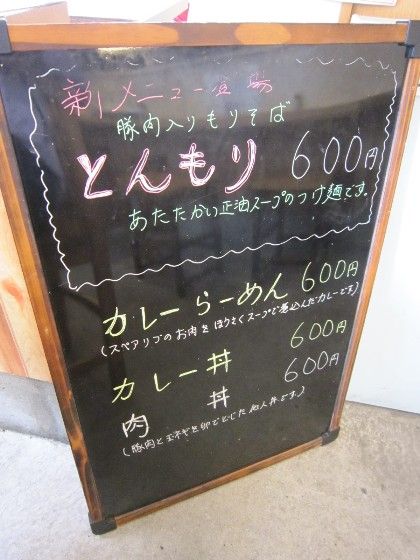 新メニュー登場
豚肉入りもりそば
とんもり 600円
あたたかい正油スープのつけ麺です。
カレーらーめん 600円
(スペアリブのお肉をほうさくスープで煮込んだカレーです)
カレー丼 600円
肉丼 600円
(豚肉と玉ネギを卵でとじた他人丼です。)